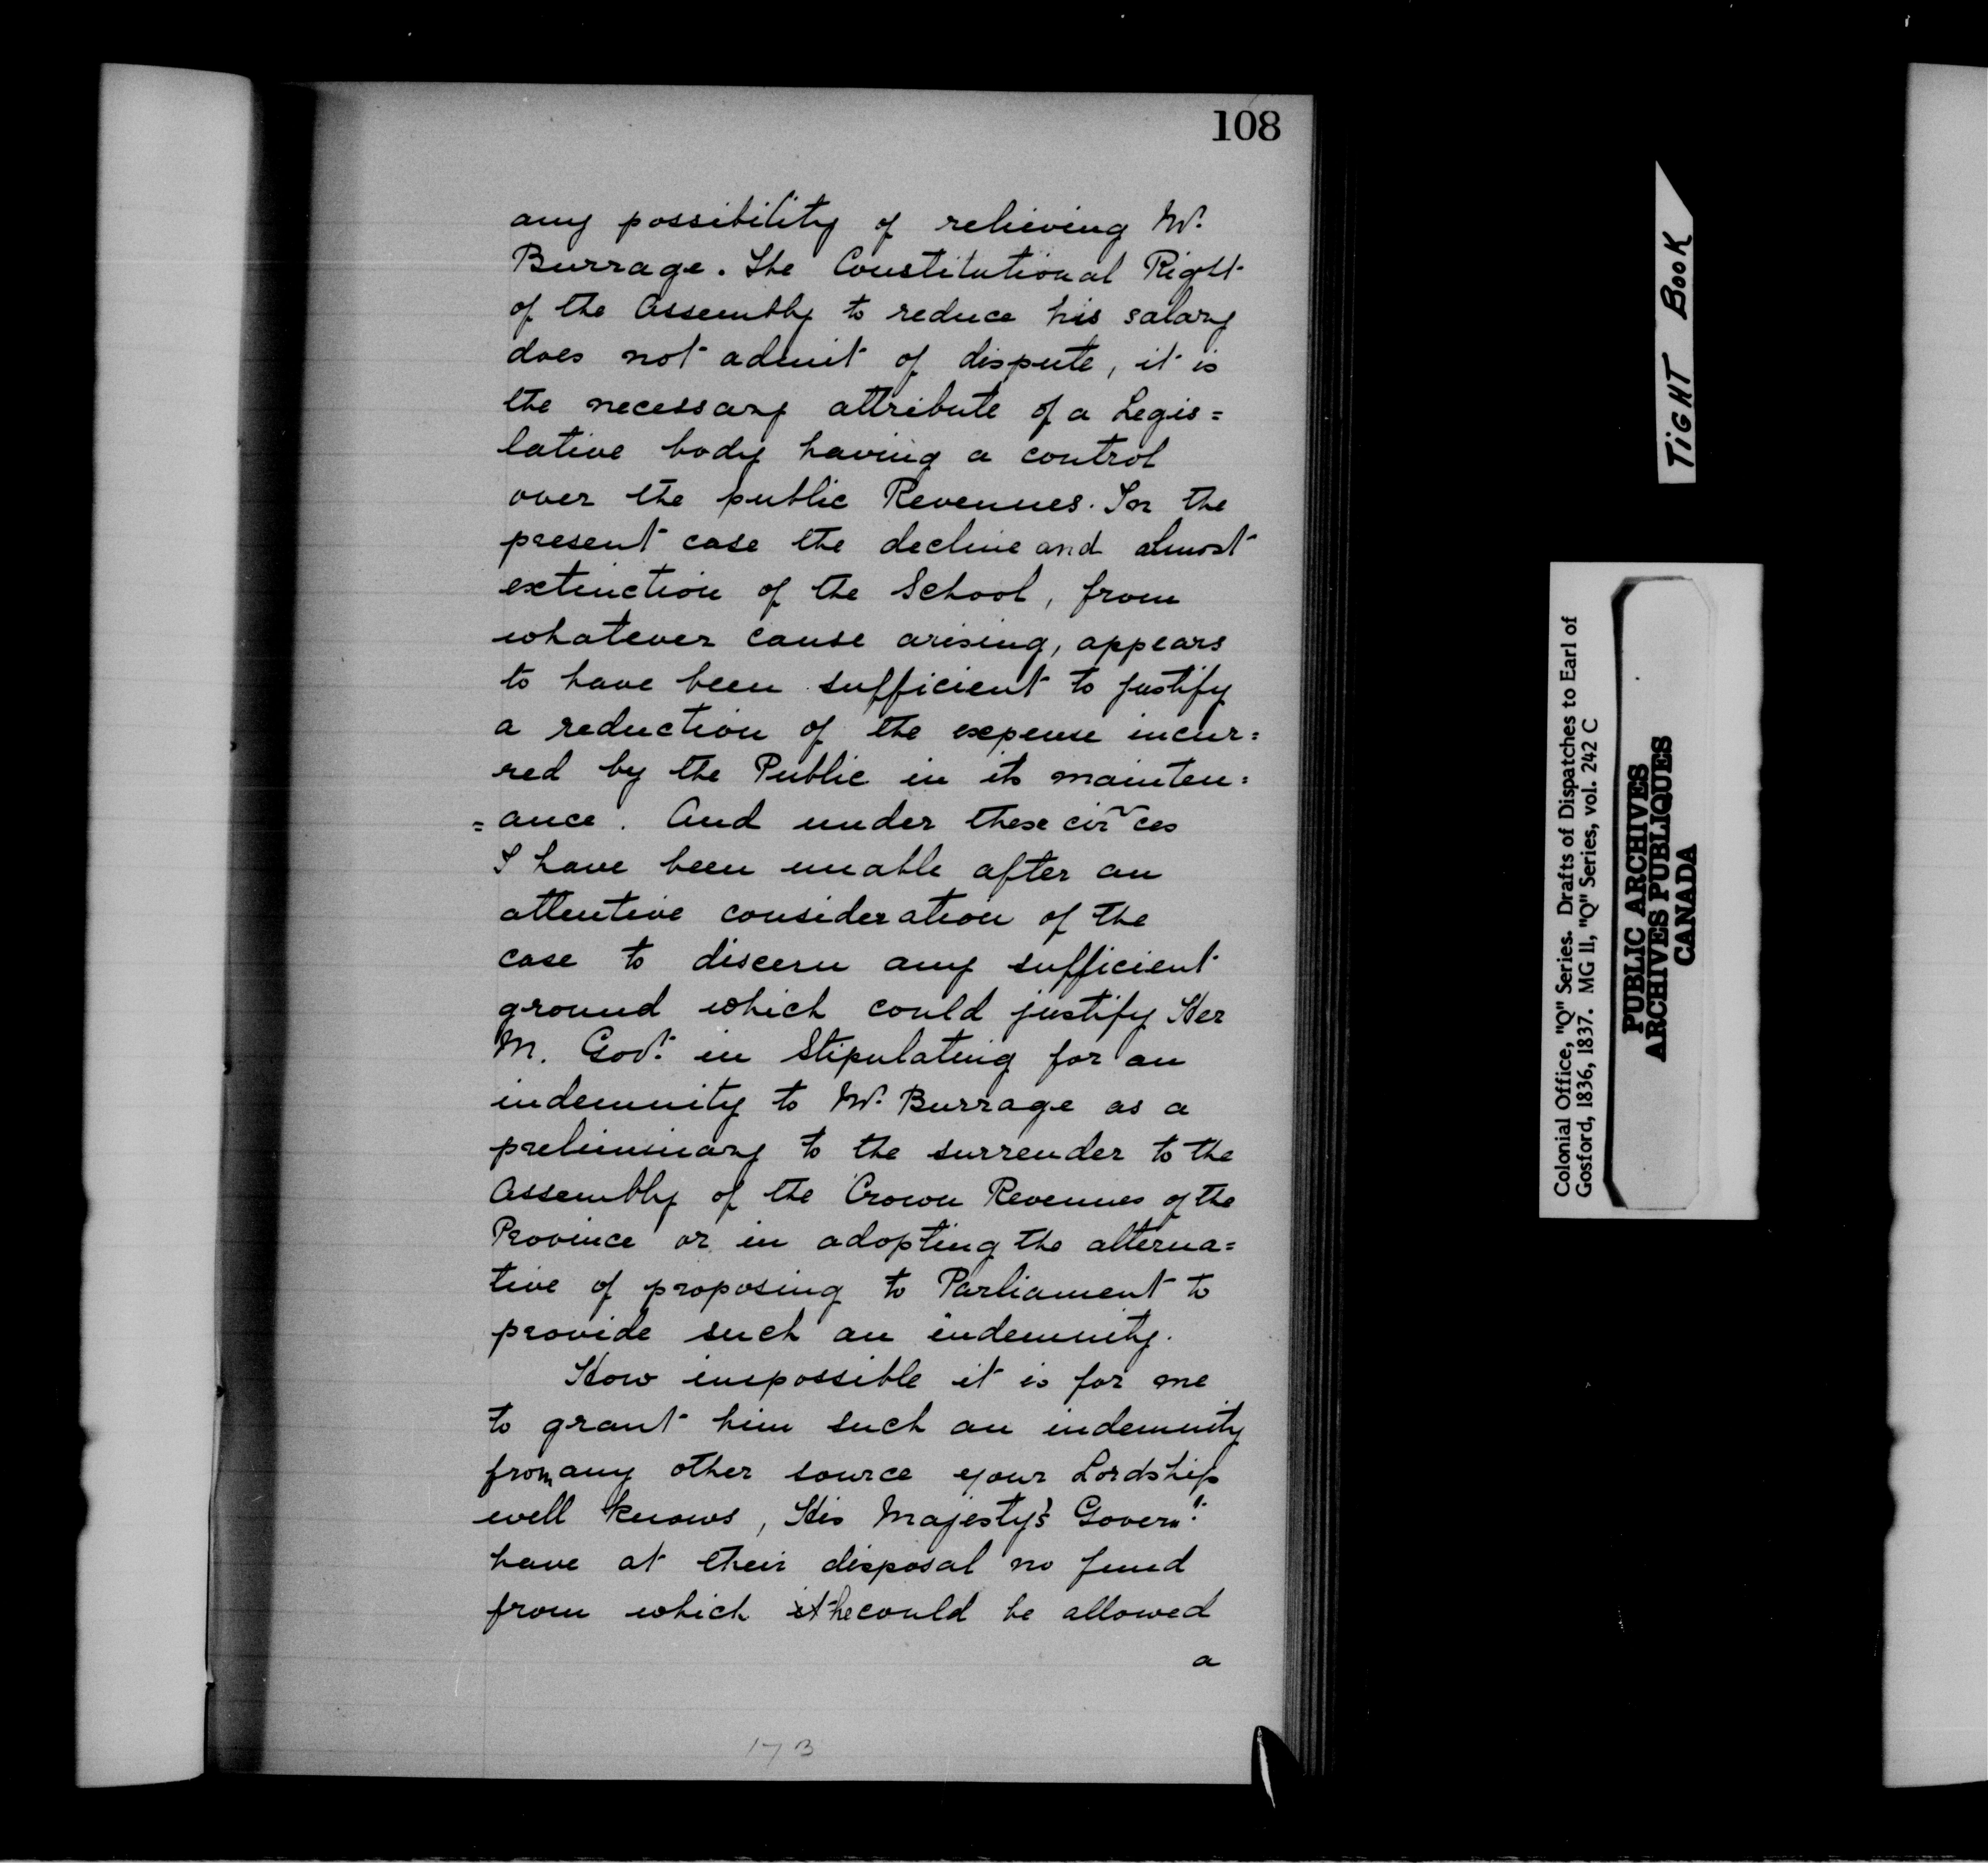 108
any possibility of relieving Mr.
Burrage. The Constitutional Right
of the Assembly to reduce his salary
does not admit of dispute, it is
the necessary attribute of a Legis=
lative body having a control
over the public Revenues. In the
present case the decline and almost
extinction of the School, from
whatever cause arising, appears
to have been sufficient to justify
a reduction of the expense incur=
red by the Public in its mainten=
=ance. And under these cir~ces
I have been unable after an
attentive consideration of the
case to discern any sufficient
ground which could justify Her
M. Govt. in Stipulating for an
indemnity to Mr. Burrage as a
preliminary to the surrender to the
Assembly of the Crown Revenues of the
Province or in adopting the alterna=
tive of proposing to Parliament to
provide such an indemnity.
How impossible it is for me
to grant him such an indemnity
from any other source your Lordship
well knows, His Majesty's Governt.
have at their disposal no fund
from which it he could be allowed
a
173
TIGHT BOOK
Colonial Office, "Q" Series. Drafts of Dispatches to Earl of
Gosford, 1836, 1837. MG 11, "Q" Series, vol. 242 C
PUBLIC ARCHIVES
ARCHIVES PUBLIQUES
CANADA